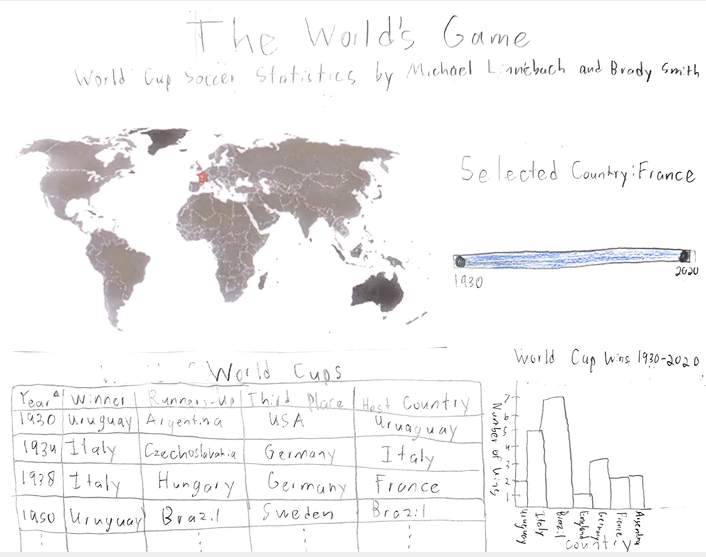 The World's Game
World Cup Soccer Statistics by Michael Linnebach and Brady Smith
Selected Country: France
1930 2020
World Cups
Year Winner Runners-Up Third Place Host Country
1930 Uruguay Argentina USA Uruaguay
1934 Italy Czechoslovakia Germany Italy
1938 Italy Hungary Germany France
1950 Uruguay Brazil Sweden Brazil
World Cup Wins 1930-2020
Number of Wins
7
6
5
4
3
2
1
Uruguay Italy Brazil England Germany France Argentina
Country